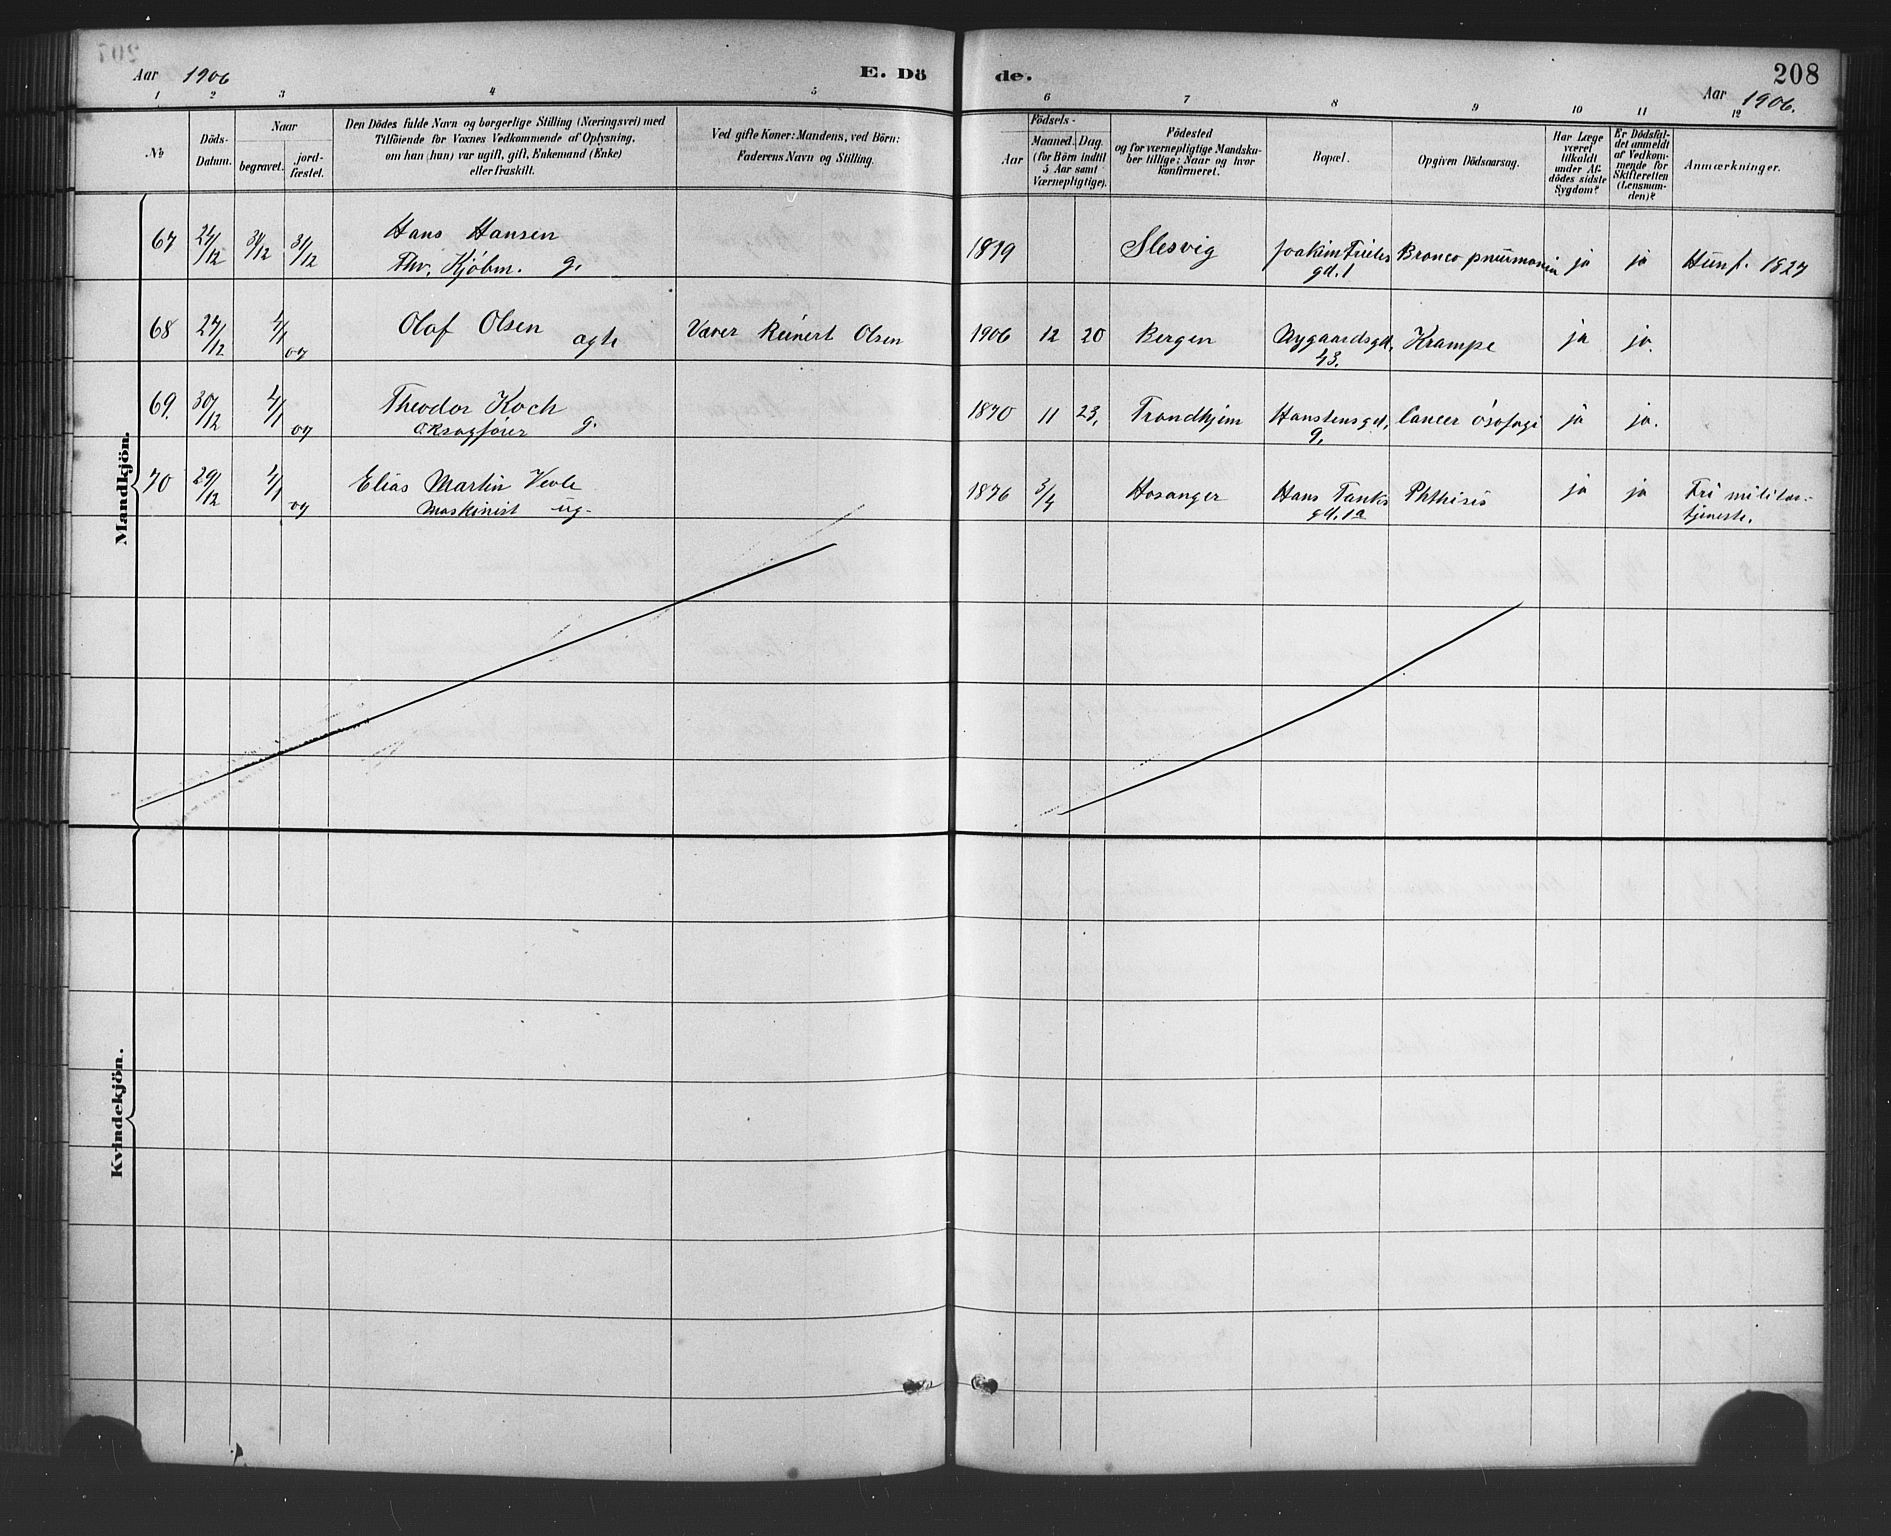 Aar 1906
E. Dö
de.
208
Aar 1906.
1 2 3 4 5 6 7 8 9 10 11 12
No
Döds-
Datum.
Naar
begravet.
jord-
fæstet.
Den Dödes fulde Navn og borgerlige Stilling (Næringsvei) med
Tilföiende for Voxnes Vedkommende af Oplysning,
om han (hun) var ugift, gift, Enkemand (Enke)
eller fraskilt.
Ved gifte Koner: Mandens, ved Börn:
Faderens Navn og Stilling.
Födsels-
Aar
Maaned. Dag.
(for Börn indtil
5 Aar samt
Værnepligtige).
Födested
og for værnepligtige Mandska-
ber tillige; Naar og hvor
konfirmeret.
Bopæl.
Opgiven Dödsaarsag.
Har Læge
været
tilkaldt
under Af-
dödes sidste
Sygdom?
Er Dödsfal-
det anmeldt
af Vedkom-
mende for
Skifteretten
(Lensman-
den)?
Anmærkninger.
Mandkjön.
67 27/12 31/12 31/12 Hans Hansen
Fhv. Kjøbm. g.
1819 Slesvig Joakim Frieles
gd. 1
Bronco pneumonia ja ja 1827
68 27/12 4/1 og Olaf Olsen
ægte
Reinert Olsen 1906 12 20 Bergen Nygaardsgd.
43.
Krampe ja ja.
69. 30/12 4/1 og Theodor Koch
g.
1870 11 23. Trondhjem Hanstensgd.
9.
Cancer ösofagi ja ja.
70 29/12 4/1 og Elias Martin
Maskinist ug.
1876 3/4 Hosanger Hans Tanks
gd. 1a
Phthisis ja ja Fri militær-
tjeneste.
Kvindekjön.